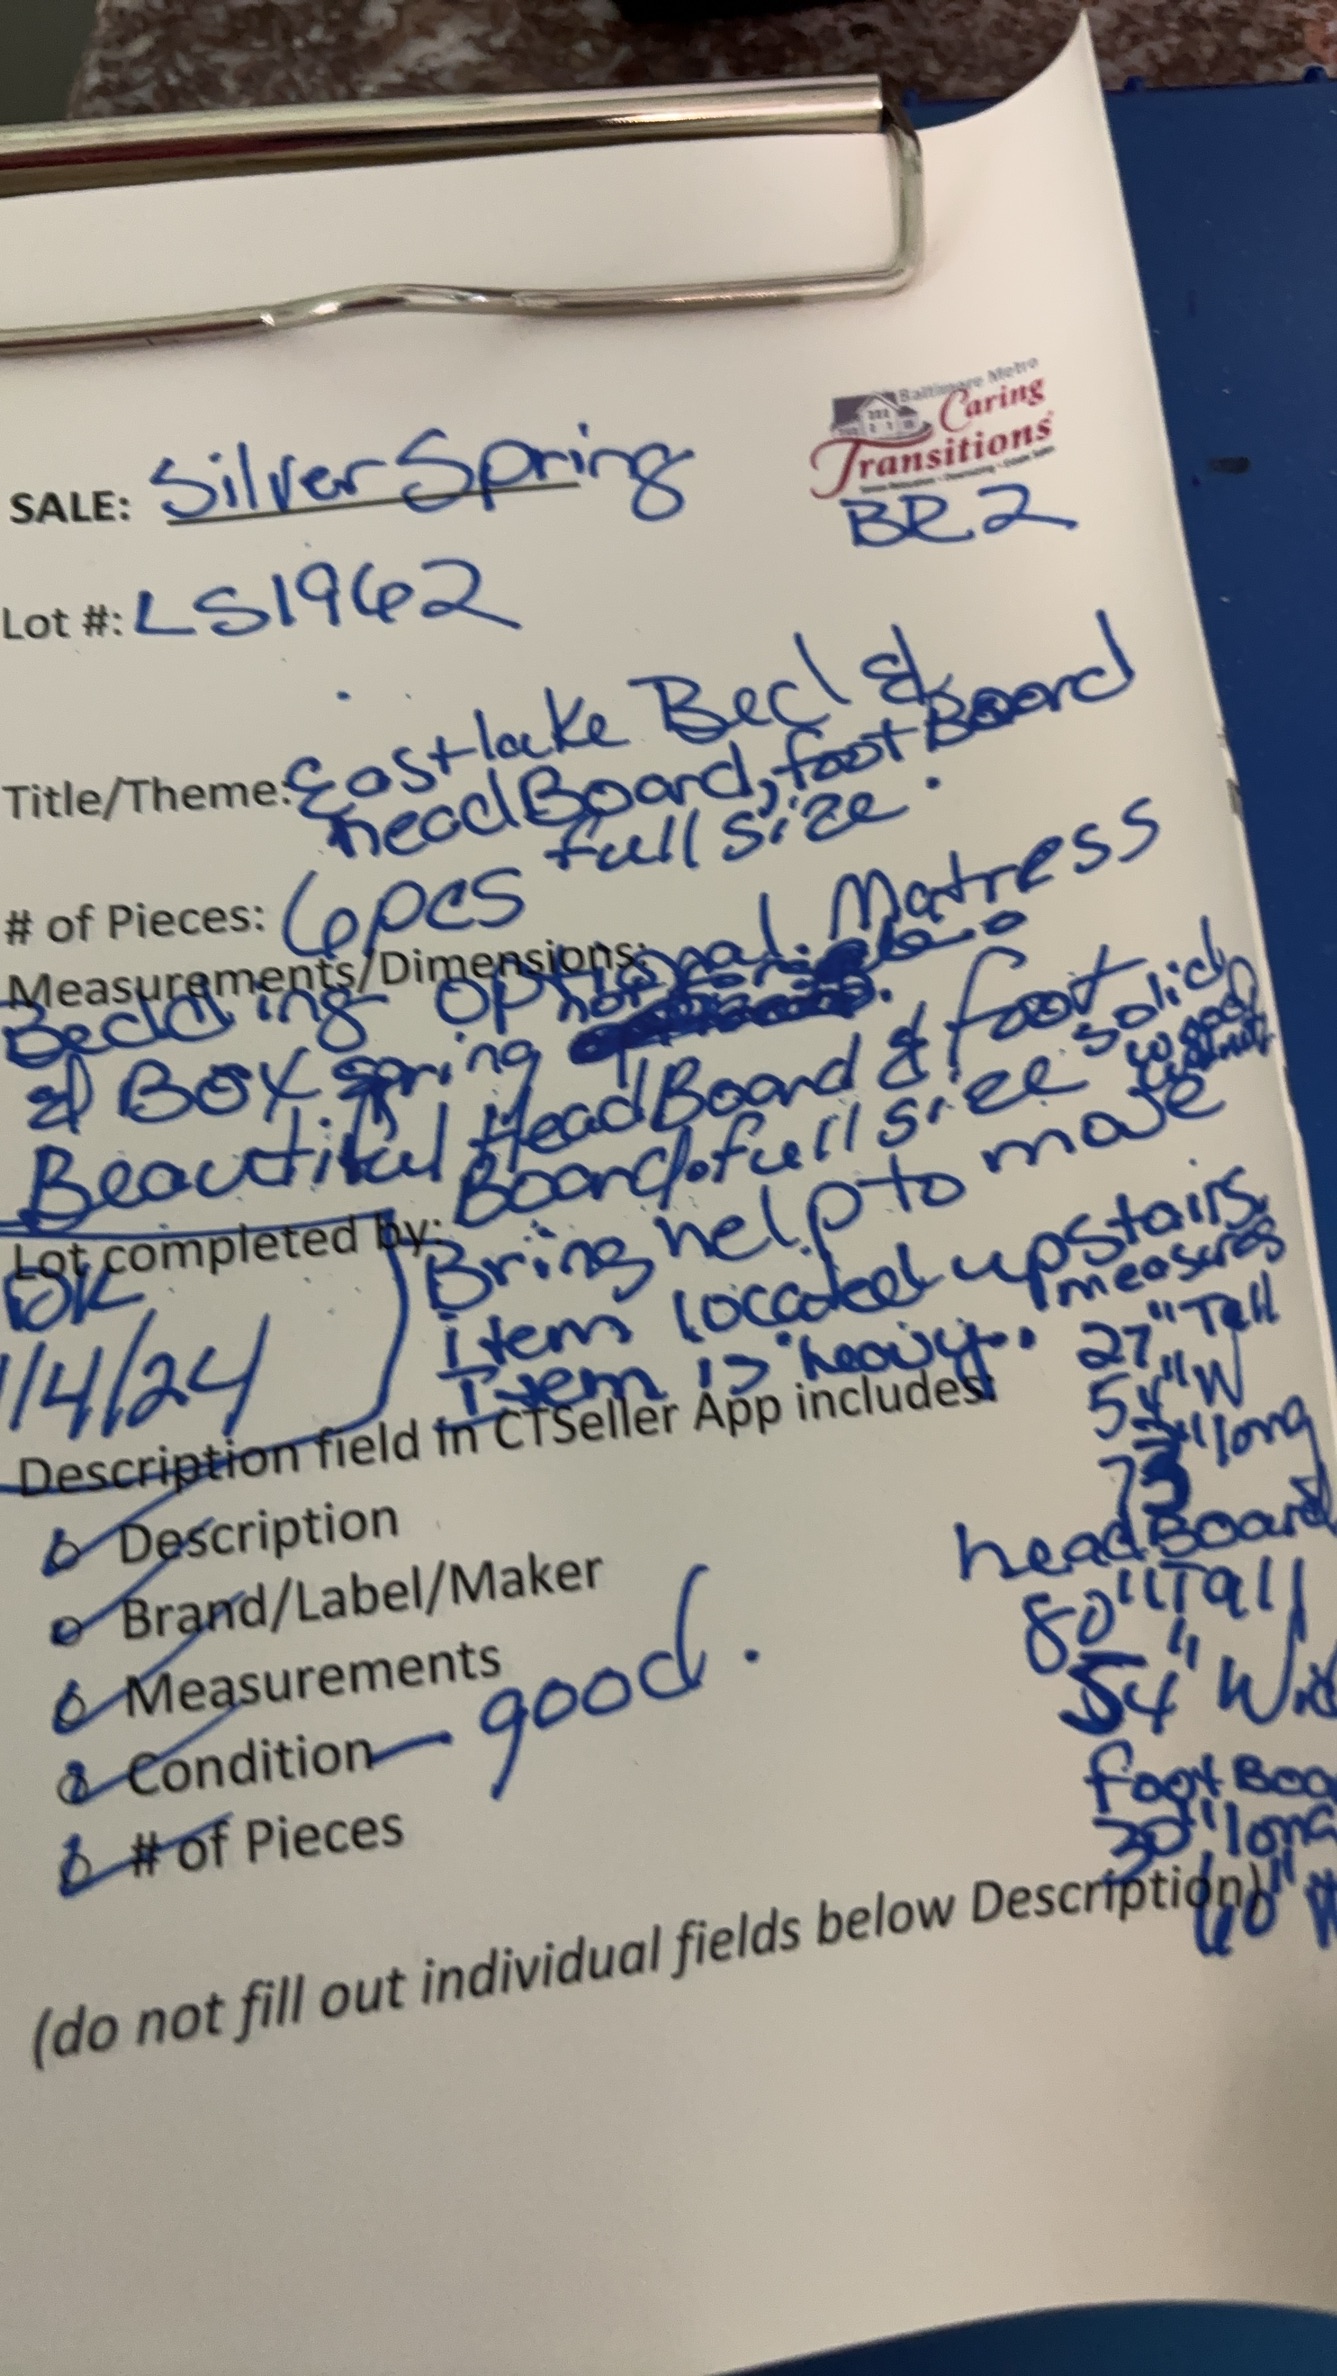 Baltimore Metro
Caring
Transitions
SALE: Silver Spring
BR2
Lot #: LS1962
Title/Theme: Eastlake Bed &
headBoard, footBoard
full size.
# of Pieces: 6pcs
Measurements/Dimensions:
Bedding optional. Matress
& Box spring not
Beautiful HeadBoard & foot
Board. full size solid
wood
walnut
Bring help to move
Lot completed by:
DK
1/4/24
item located upstairs.
Item is "heavy".
measures
27" Tall
54" W
75" long
Description field in CTSeller App includes:
Description
Brand/Label/Maker
Measurements
Condition - good.
# of Pieces
headBoard
80" Tall
54" Wid
foot Boa
30" long
60"
(do not fill out individual fields below Description)